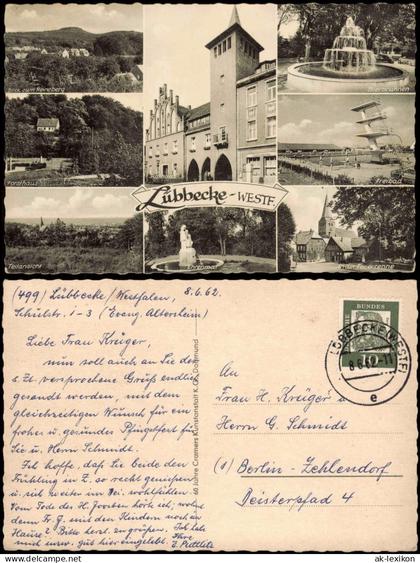 Blick zum Reineberg
Bierbrunnen
Forsthaus
Freibad
Lübbecke-WESTF.
Teilansicht
Ehrenmal
(499) Lübbecke/Westfalen, 8.6.62.
Schulstr. 1-3 (Evang. Altersheim)
Liebe Frau Krüger,
nun soll auch an Sie der
s. Zt. versprochene Gruß endlich
gesandt werden, mit dem
gleichzeitigen Wunsch für ein
frohes u. gesundes Pfingstfest für
Sie u. Herrn Schmidt.
Ich hoffe, daß Sie beide den
Frühling in Z. so recht genießen
u. sich weiter im Bei. wohlfühlen.
Vom Tode des H. Josten hörte ich;
dem Fr. J. mit den Kindern noch im
Hause? Bitte herzl. zu grüßen. Ich habe
mich gut hier eingelebt. Ihre
60 Jahre Cramers Kunstanstalt KG., Dortmund
DEUTSCHE BUNDESPOST
LÜBBECKE (WESTF)
8.6.62-11
e
An
Frau H. Krüger
Herrn G. Schmidt
(1) Berlin-Zehlendorf
Beisterpfad 4
© ak-lexikon
www.ak-lexikon.com